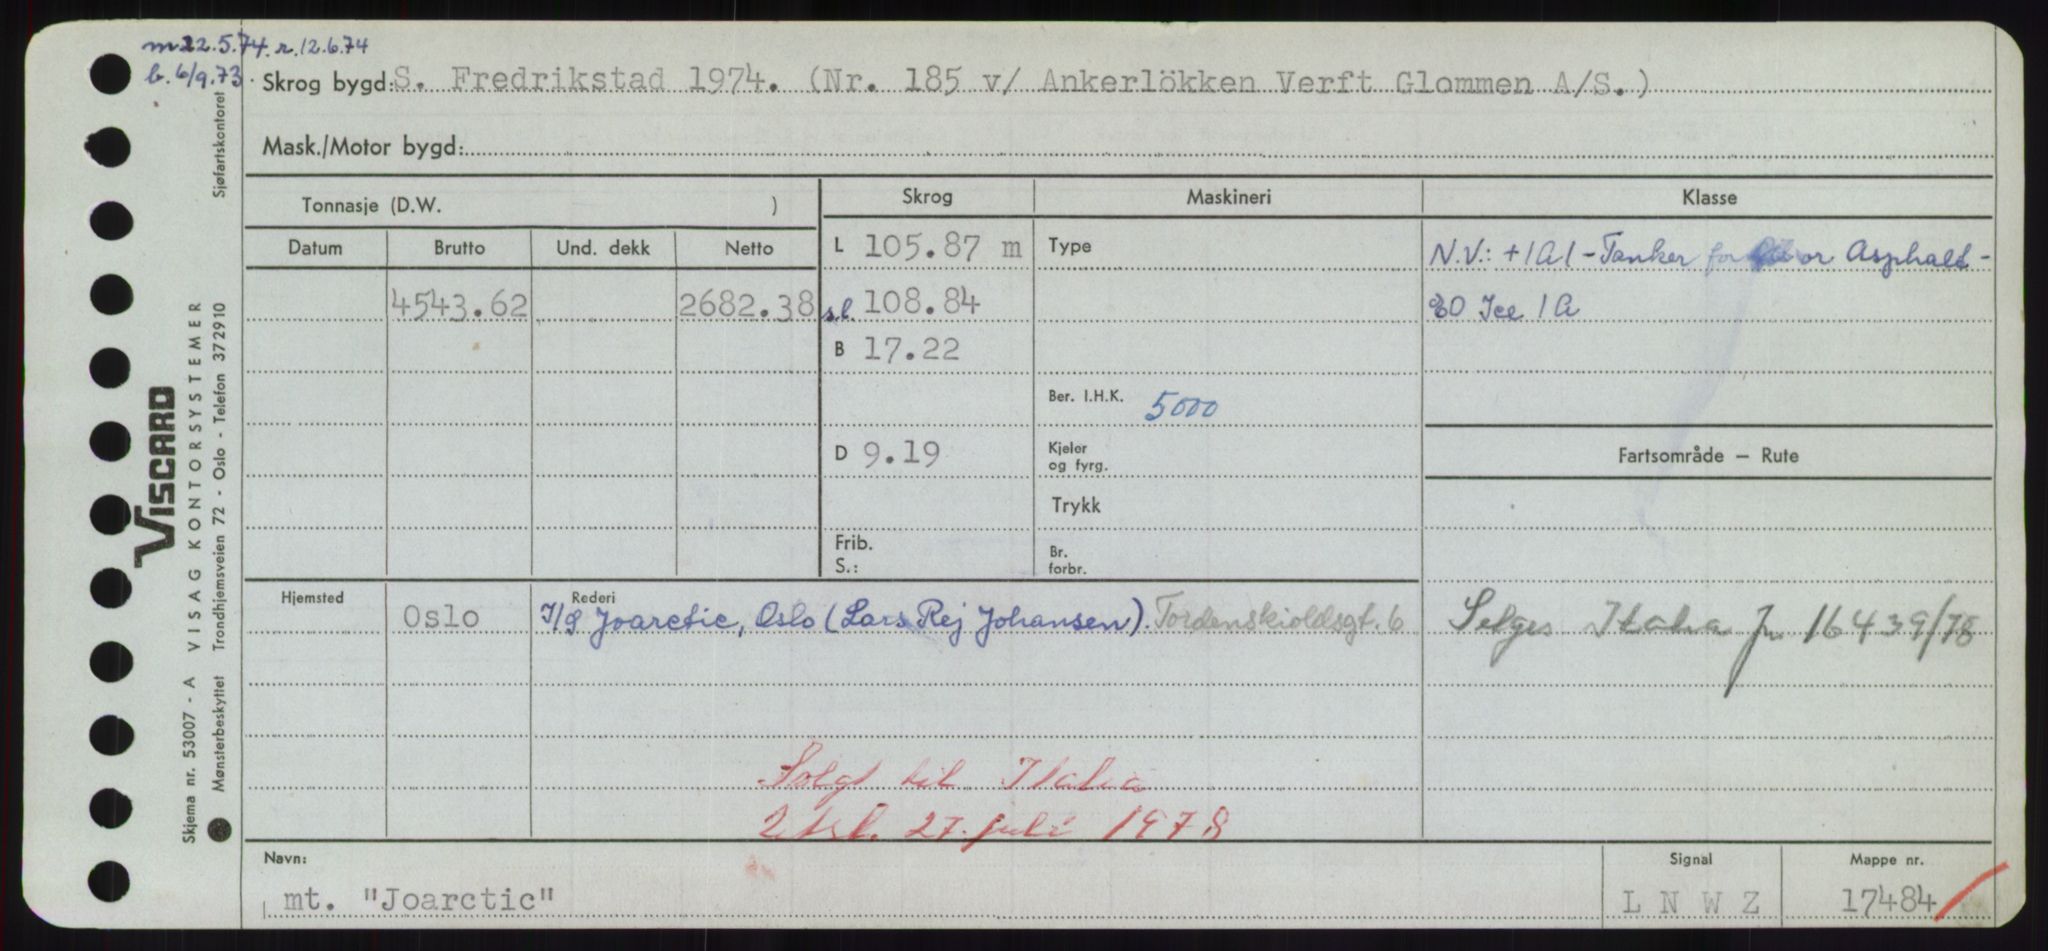 m 22.5.74. r. 12.6.74
b. 6/9.73.
Skrog bygd: S. Fredrikstad 1974. (Nr. 185 v/ Ankerlökken Verft Glommen A/S.)
Mask./Motor bygd:
Tonnasje (D.W. )
Skrog Maskineri Klasse
Datum Brutto Und. dekk Netto
L 105.87 m Type N.V.: +1A1 - Tanker for or Asphalt -
4543.62 2682.38 s.l. 108.84 EO Ice 1A
B 17.22
Ber. I.H.K. 5000
D 9.19 Kjeler og fyrg. Fartsområde — Rute
Trykk
Frib. S.: Br. forbr.
Hjemsted Oslo Rederi I/S Joarctic, Oslo (Lars Rej Johansen). Tordenskioldsgt. 6 Selges Italia Jr 16439/78
Solgt til Italia
27. juli 1978
Navn: Signal Mappe nr.
mt. "Joarctic" L N W Z 17484
VISCARD
Skjema nr. 53007 - A VISAG KONTORSYSTEMER Sjøfartskontoret
Mønsterbeskyttet Trondhjemsveien 72 - Oslo - Telefon 372910